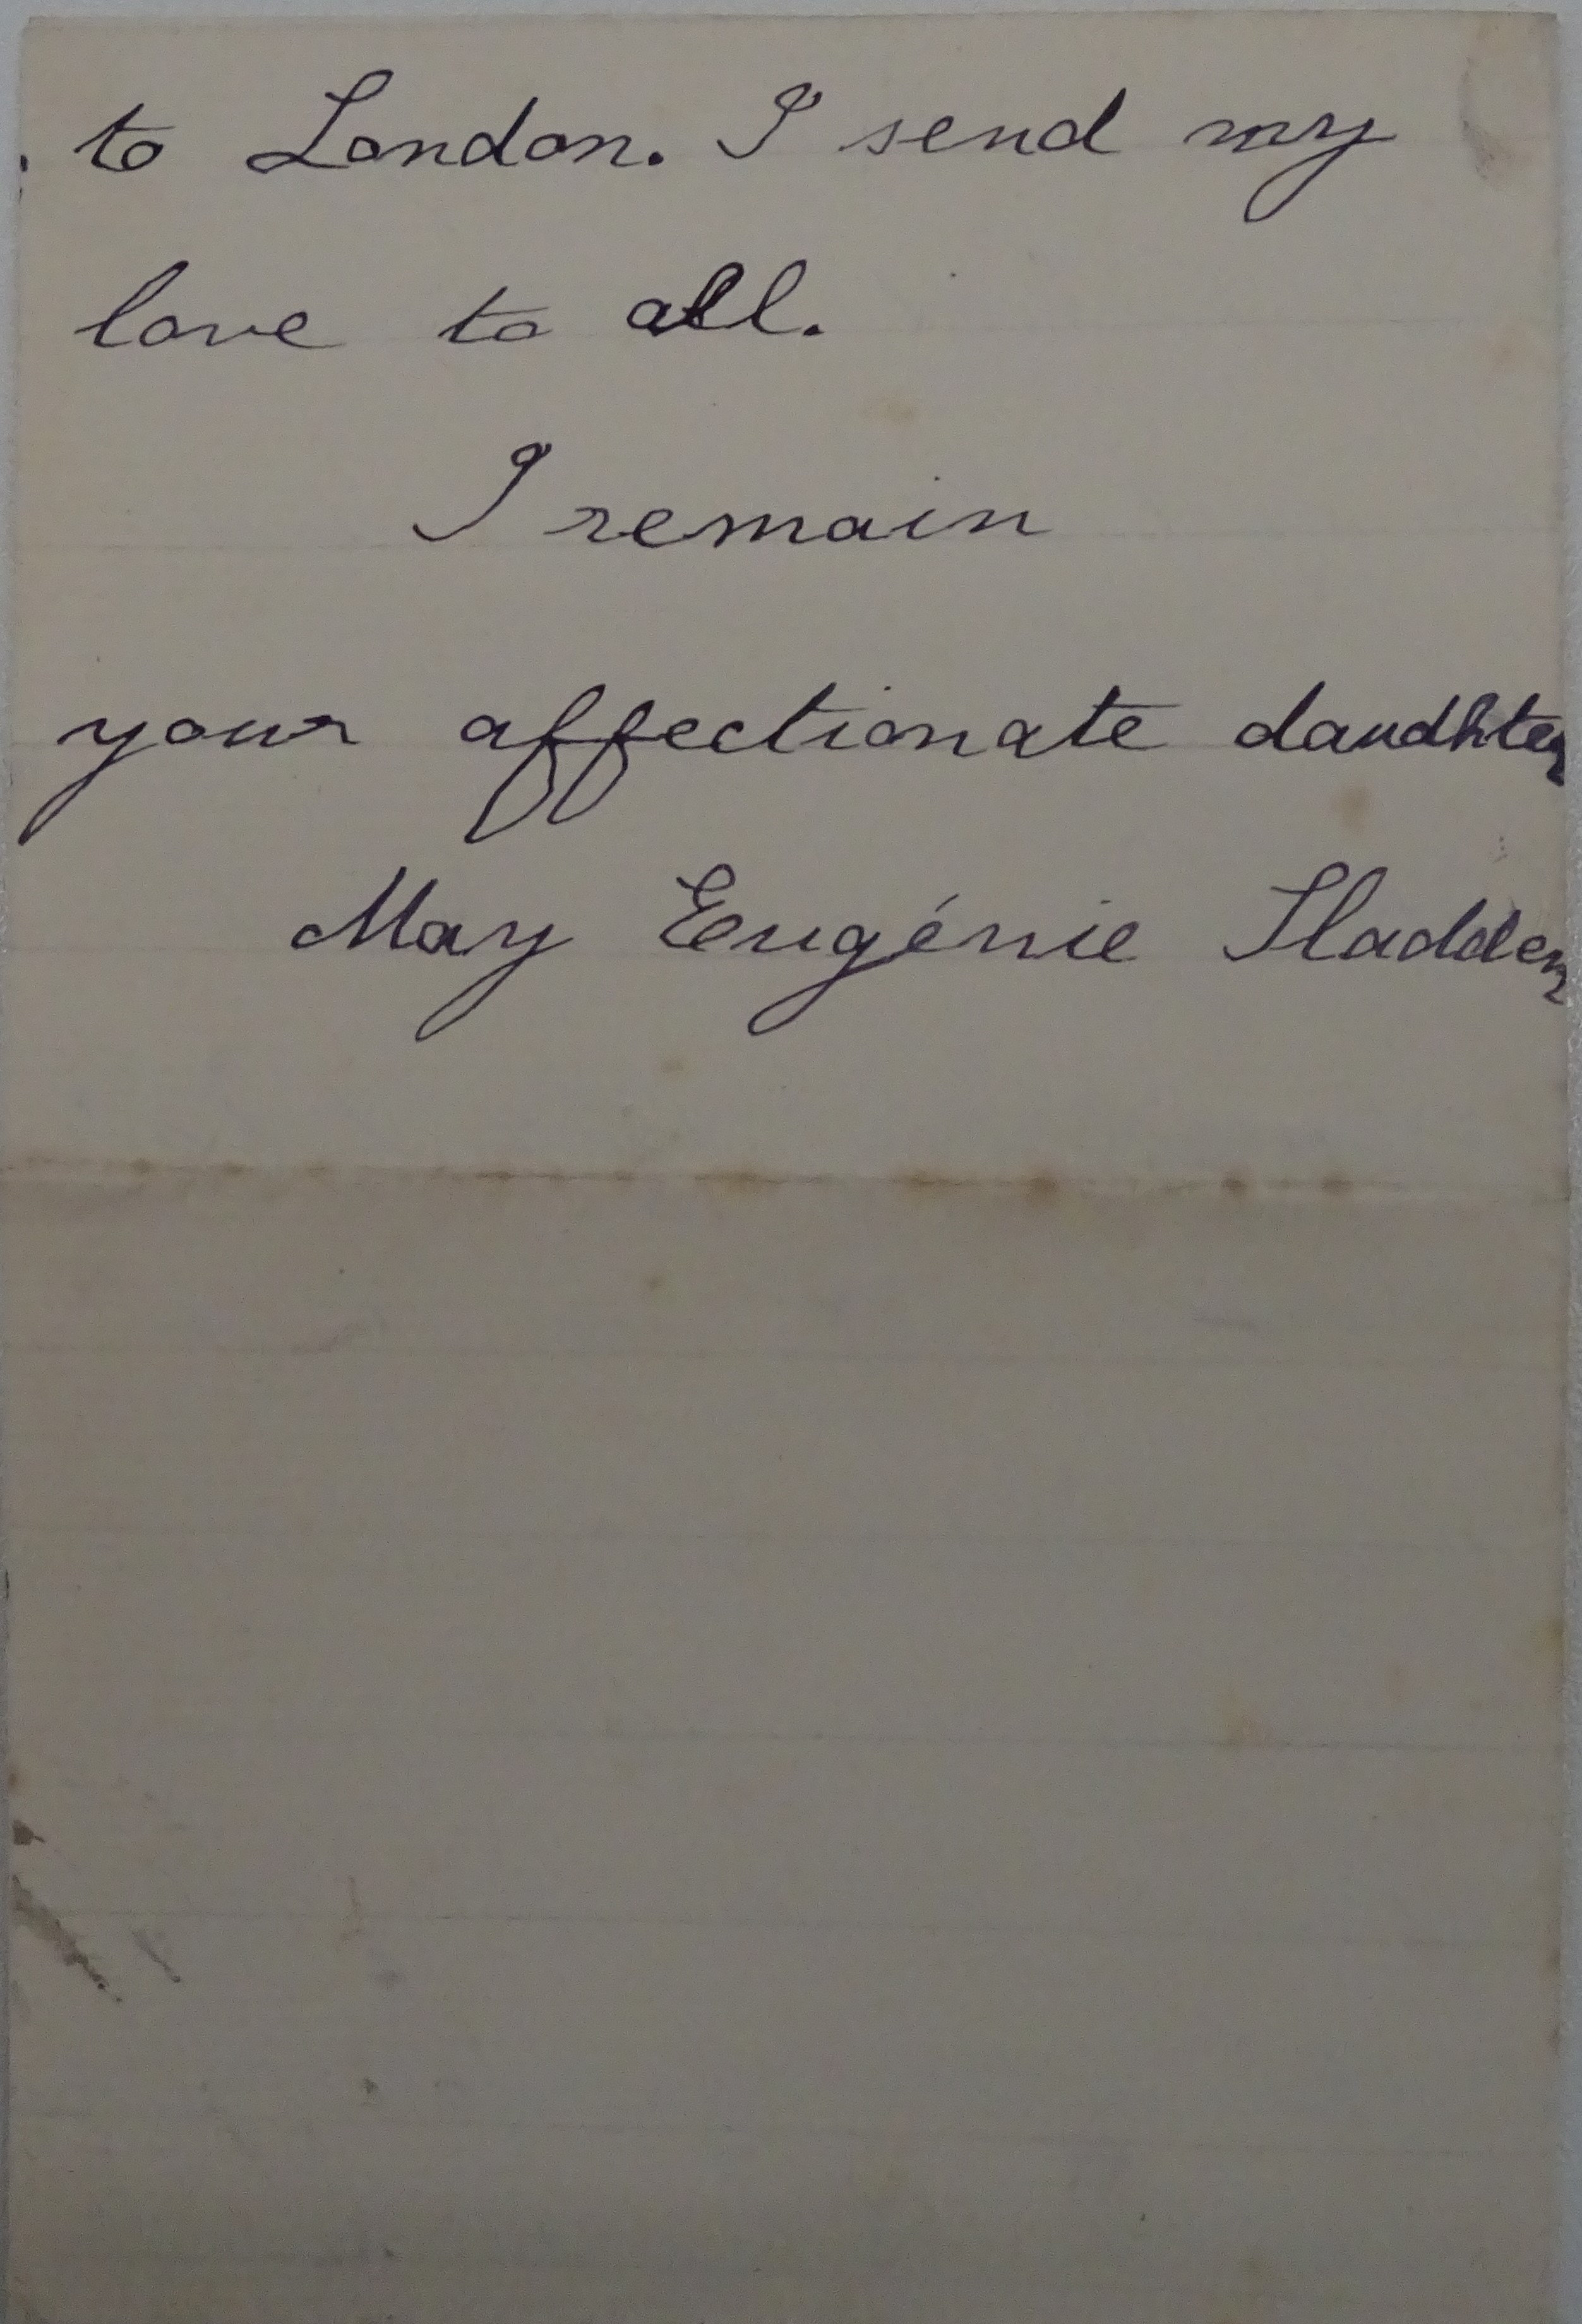 to London. I send my
love to all.
I remain
your affectionate daudhter
May Eugénie Sladden